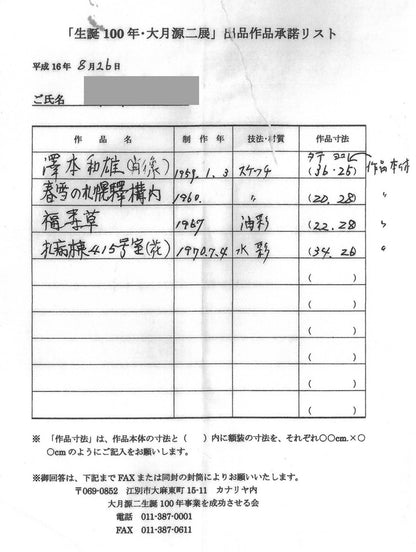 「生誕100年・大月源二展」出品作品承諾リスト
平成16年 8月26日
ご氏名
作品名 制作年 技法・材質 作品寸法
タテ ヨコ
澤本和雄(肖像) 1959.1.3 スケッチ (36.25) 作品本体
春雪の札幌驛構内 1960. 〃 (20.28) 〃
福寿草 1967 油彩 (22.28) 〃
札病棟415号室(花) 1970.7.4 水彩 (34.26) 〃
( )
( )
( )
( )
( )
※ 「作品寸法」は、作品本体の寸法と( )内に額装の寸法を、それぞれ○○cm.×○
○cmのようにご記入をお願いします。
※御回答は、下記までFAXまたは同封の封筒によりお願いいたします。
〒069-0852 江別市大麻東町15-11 カナリヤ内
大月源二生誕100年事業を成功させる会
電話 011-387-0001
FAX 011-387-0611